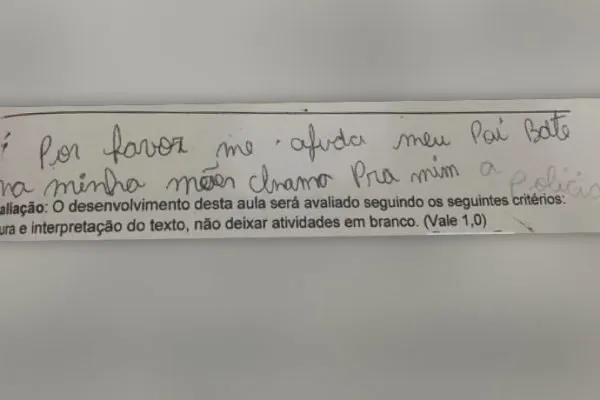 Por favor me ajuda meu Pai Bate
na minha mãen chama Pra mim a Policia
aliação: O desenvolvimento desta aula será avaliado seguindo os seguintes critérios:
ura e interpretação do texto, não deixar atividades em branco. (Vale 1,0)